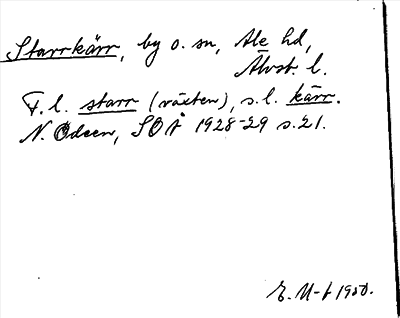 Starrkärr, by o. sn, Ale hd,
Älvsb. l.
F. l. starr (växten), s. l. kärr.
N. Ödeen, SOÅ 1928-29 s. 21.
E. U-f 1950.